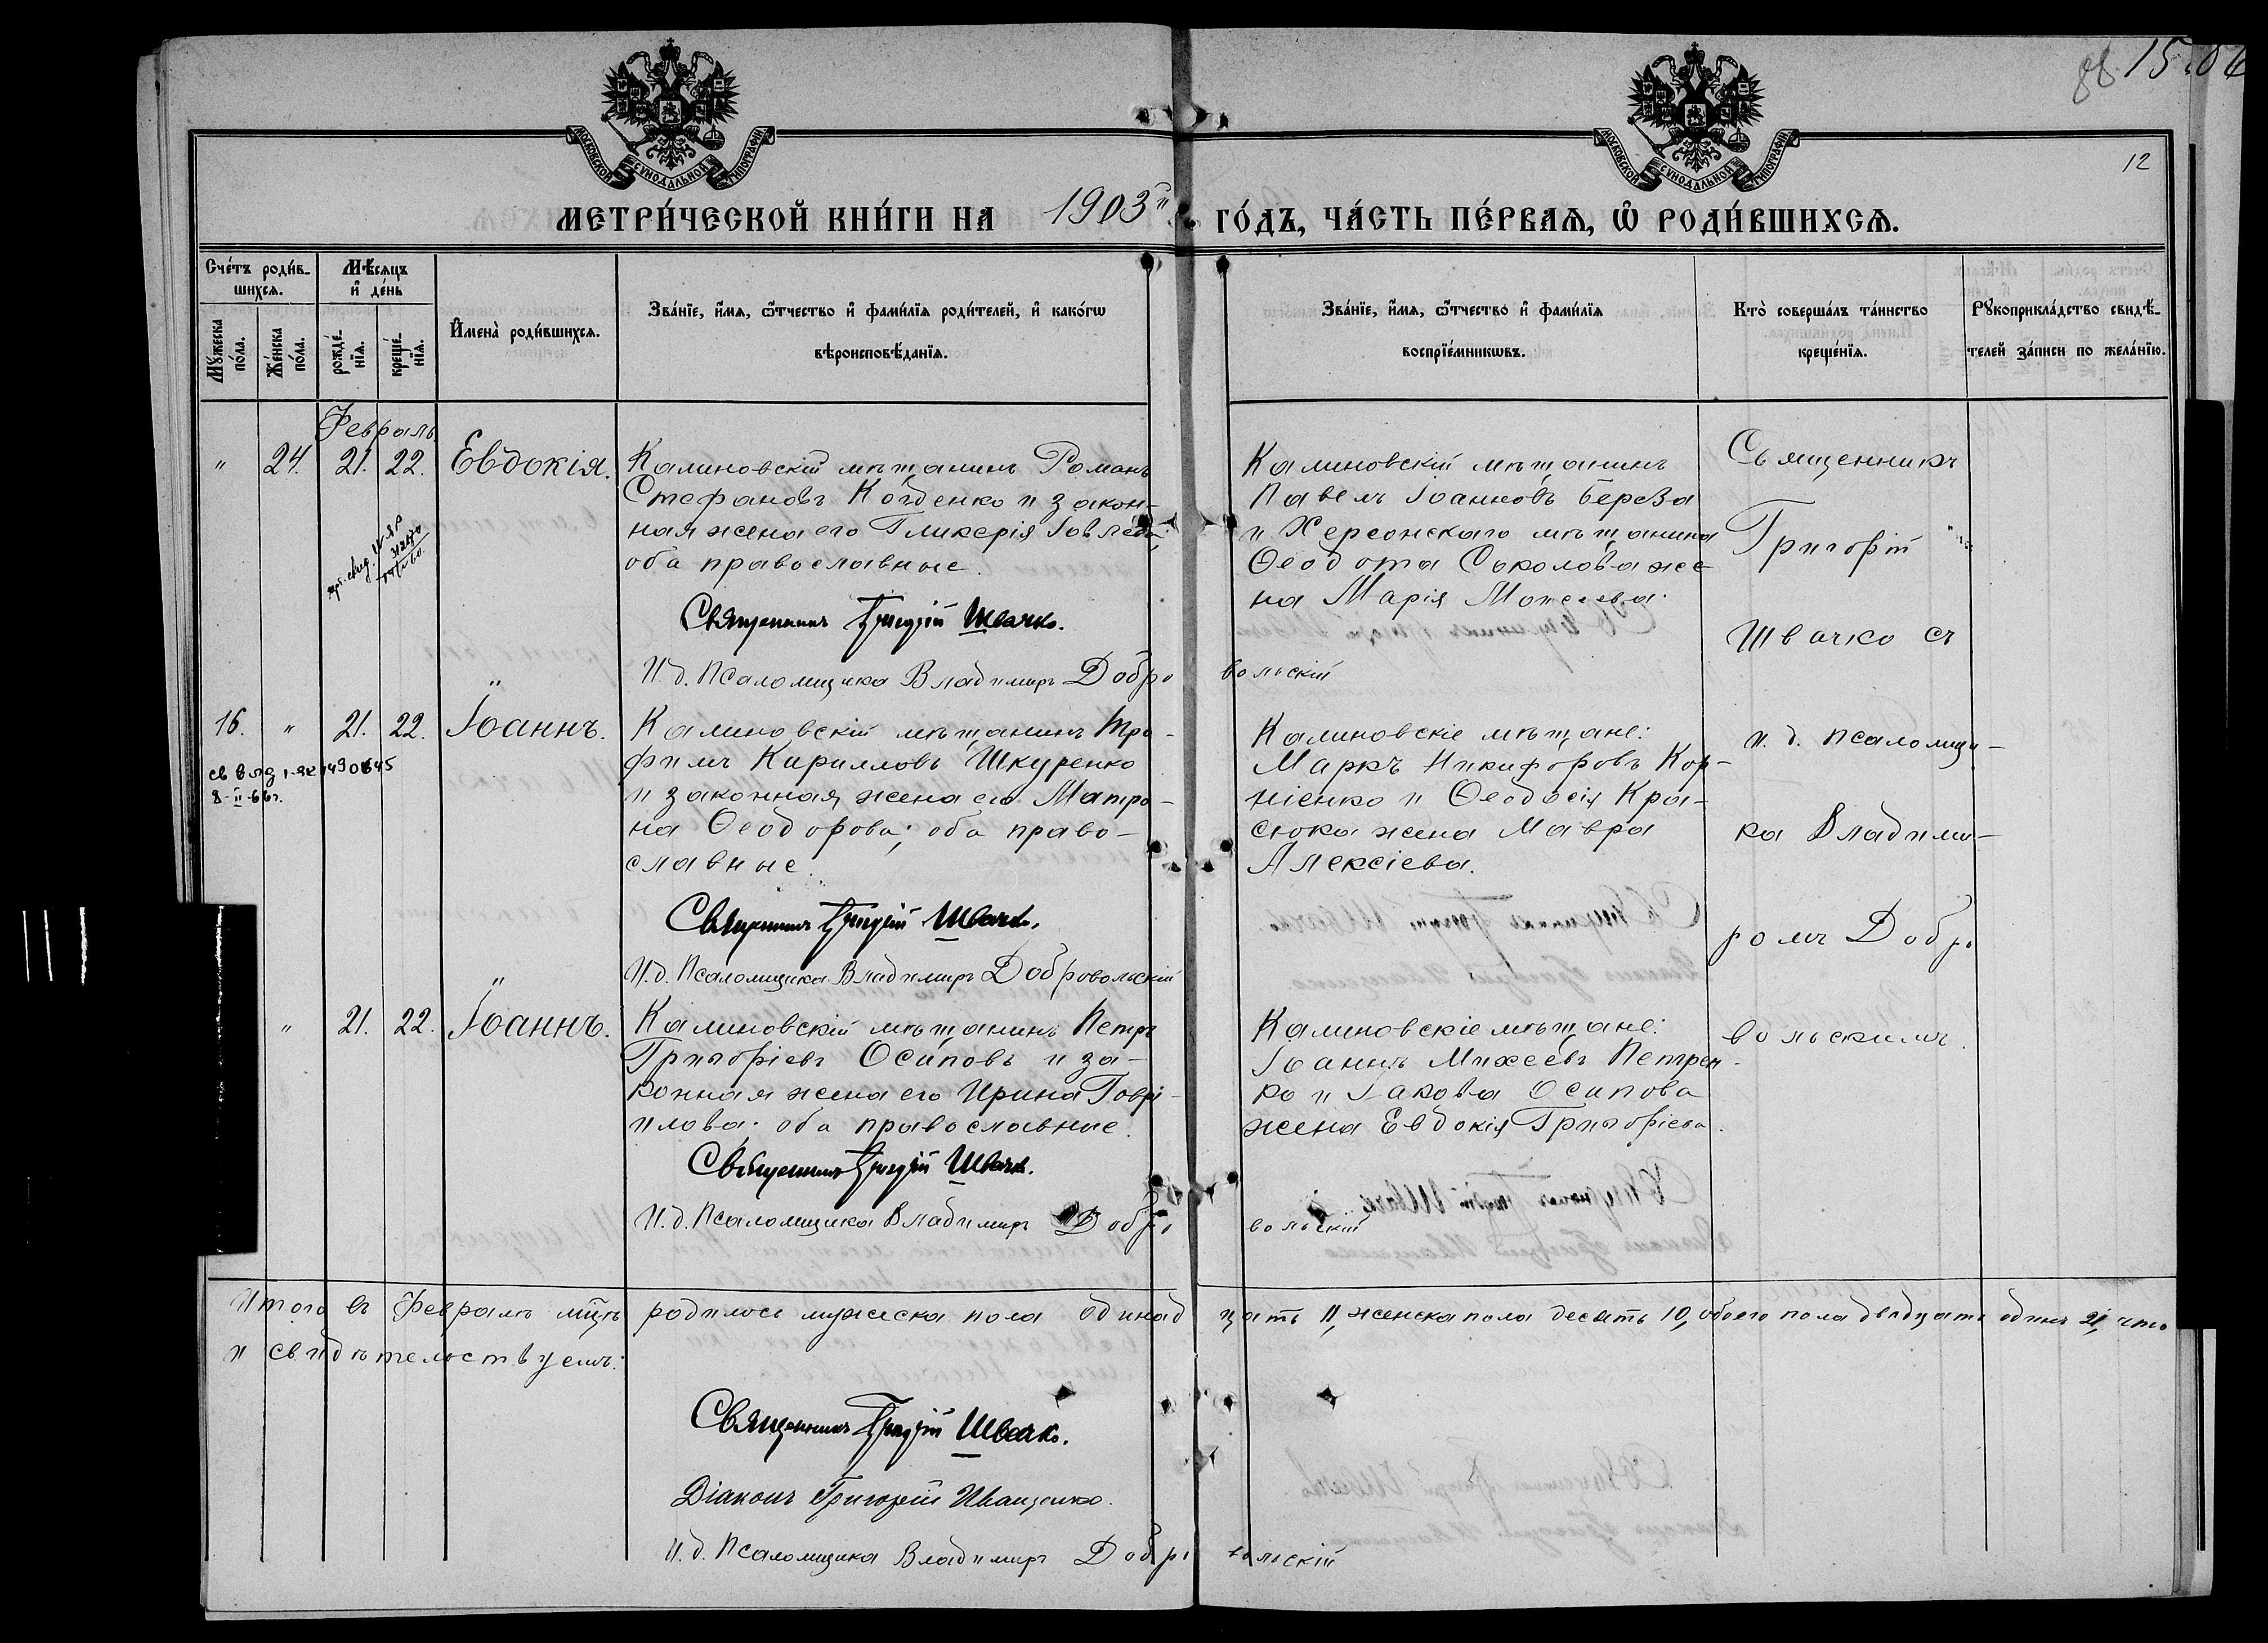 15.
12
МОСКОВСКОЙ СѴНОДАЛЬНОЙ ТИПОГРАФІИ
МОСКОВСКОЙ СѴНОДАЛЬНОЙ ТИПОГРАФІИ
МЕТРИ́ЧЕСКОЙ КНИ́ГИ НА 1903 й ГО́ДЪ, ЧА́СТЬ ПЕ́РВАѦ, Ѡ҆ РОДИ́ВШИХСѦ.
Сче́тъ роди́в-
шихсѧ.
Мꙋ́жеска по́ла.
Же́нска по́ла.
Мѣ́сѧцъ
и҆ де́нь
рожде́-
нїѧ.
креще́-
нїѧ.
И҆мена̀ роди́вшихсѧ.
Зва́нїе, и҆́мѧ, ѻ҆́тчество и҆ фами́лїѧ роди́телей, и҆ како́гѡ
вѣроисповѣ́данїѧ.
Зва́нїе, и҆́мѧ, ѻ҆́тчество и҆ фами́лїѧ
воспрїе́мникѡвъ.
Кто̀ соверша́лъ та́инство
креще́нїѧ.
Рꙋкоприкла́дство свидѣ́-
телей за́писи по жела́нїю.
Февраль
" 24. 21. 22. Евдокія.
Калиновскій мѣщанинъ Романъ
Стефановъ Когденко и закон-
ная жена его Гликерія Іовлева;
оба православные.
Священникъ Григорій Швачко.
И. д. Псаломщика Владимиръ Добровольскій
Калиновскій мѣщанинъ
Павелъ Іоанновъ Береза
и Херсонскаго мѣщанина
Ѳеодота Соколова же-
на Марія Моисеева.
Священникъ
Григорій
Швачко съ
и. д. псаломщи-
ка Владими-
ромъ Добро
вольскимъ.
16. " 21. 22. Іоаннъ.
8-II-66г.
Калиновскій мѣщанинъ Тро-
фимъ Кирилловъ Шкуренко
и законная жена его Матро-
на Ѳеодорова; оба право-
славные.
Священникъ Григорій Швачко.
И. д. Псаломщика Владимиръ Добровольскій
Калиновскіе мѣщане:
Маркъ Никифоровъ Кор-
ніенко и Ѳеодосія Кра-
сюка жена Мавра
Алексіева.
" 21. 22. Іоаннъ.
Калиновскій мѣщанинъ Петръ
Григоріевъ Осиповъ и за-
конная жена его Ирина Гаврі-
илова; оба православные.
Священникъ Григорій Швачко.
И. д. Псаломщика Владимиръ Добровольскій
Калиновскіе мѣщане:
Іоаннъ Михеевъ Петрен-
ко и Іакова Осипова
жена Евдокія Григоріева.
Итого въ Февралѣ мцѣ родилось мужеска пола одинадцать 11, женска пола десять 10, обоего пола двадцать одинъ 21, что
и свидѣтельствуемъ:
Священникъ Григорій Швачко.
Діаконъ Григорій Иващенко.
И. д. Псаломщика Владимиръ Добровольскій